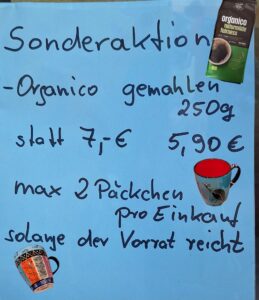 Sonderaktion
- Organico gemahlen
250g
statt 7,-€ 5,90€
max 2 Päckchen
pro Einkauf
solange der Vorrat reicht
organico